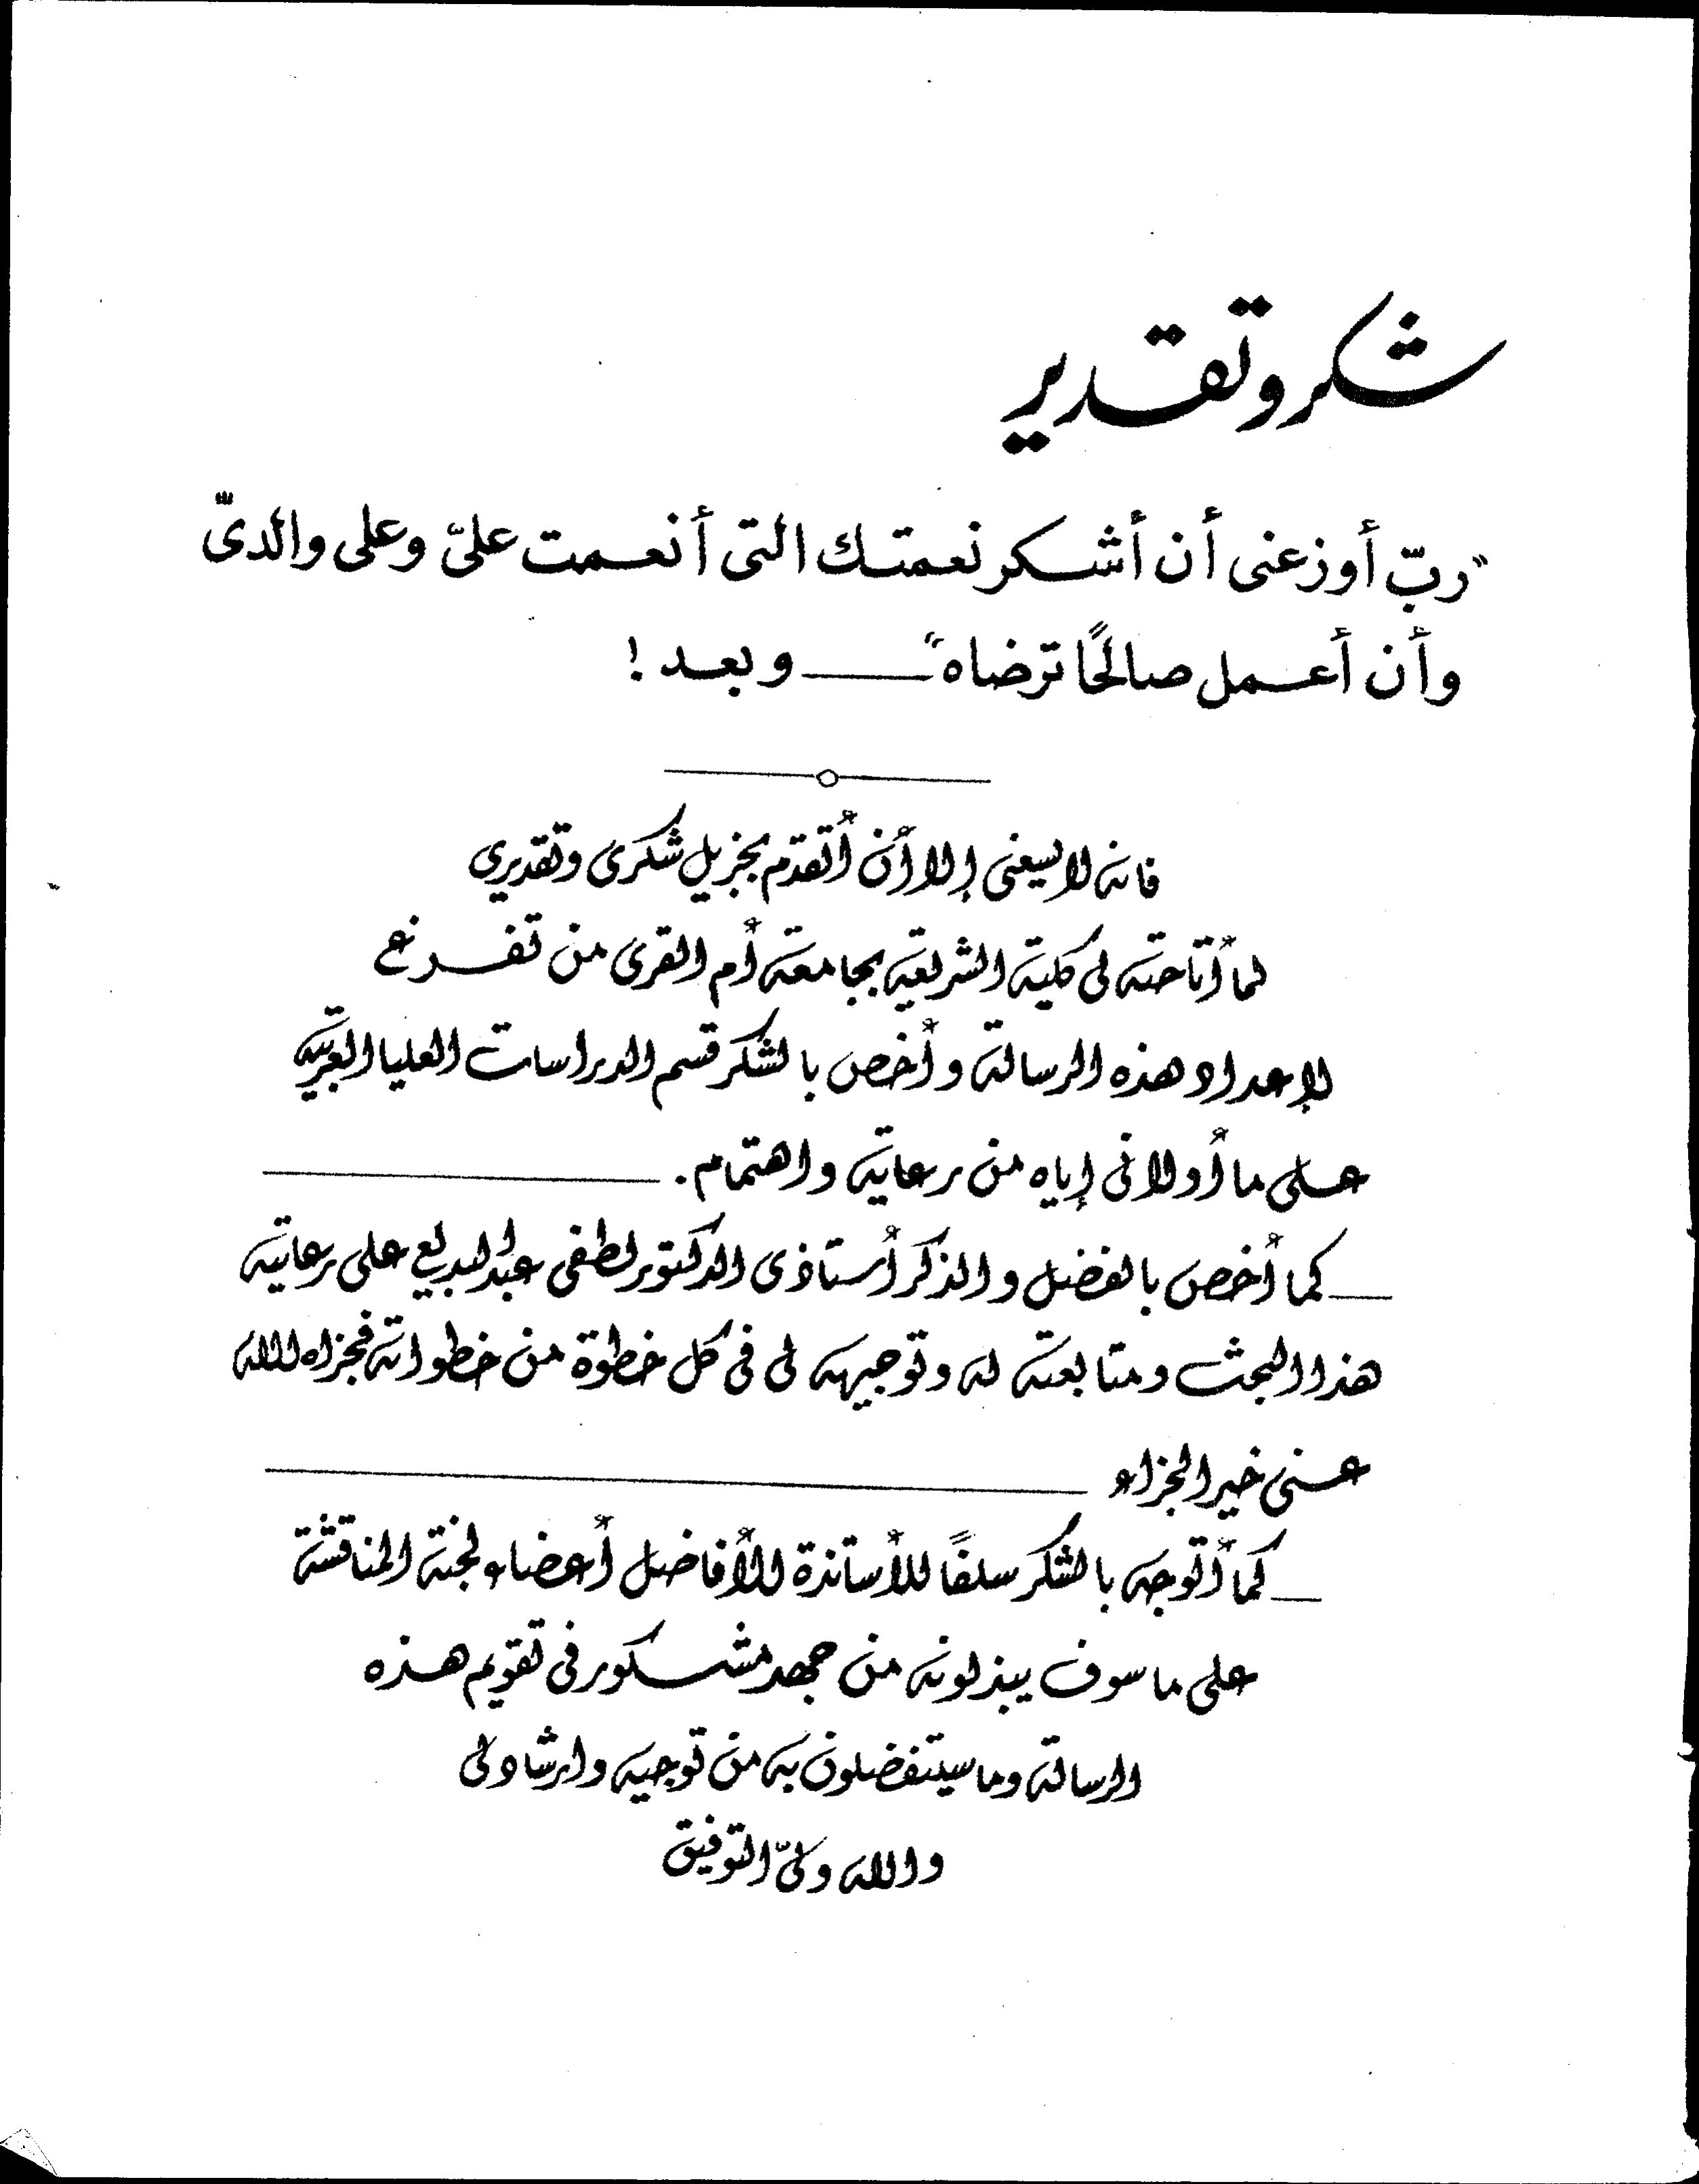 شكر وتقدير
"ربّ أوزعنى أن أشكر نعمتك التى أنعمت علىّ وعلى والدىّ
وأن أعمل صالحًا ترضاه" ــــ وبعد !
فانه لا يسعنى إلا أن أتقدم بجزيل شكرى وتقديري
لما أتاحته لى كلية الشريعة بجامعة أم القرى من تفرغ
لإعداد هذه الرسالة وأخص بالشكر قسم الدراسات العليا العربية
على ما أولانى إياه من رعاية واهتمام . ــــ
ــ كما أخص بالفضل والذكر أستاذى الدكتور لطفى عبدالبديع على رعايته
هذا البحث ومتابعته له وتوجيهه لى فى كل خطوة من خطواته فجزاه الله
عنى خير الجزاء ــــ
ــ كما أتوجه بالشكر سلفًا للأساتذة الأفاضل أعضاء لجنة المناقشة
على ما سوف يبذلونه من جهد مشكور فى تقويم هذه
الرسالة وما سيتفضلون به من توجيه وارشاد لى
والله ولىّ التوفيق